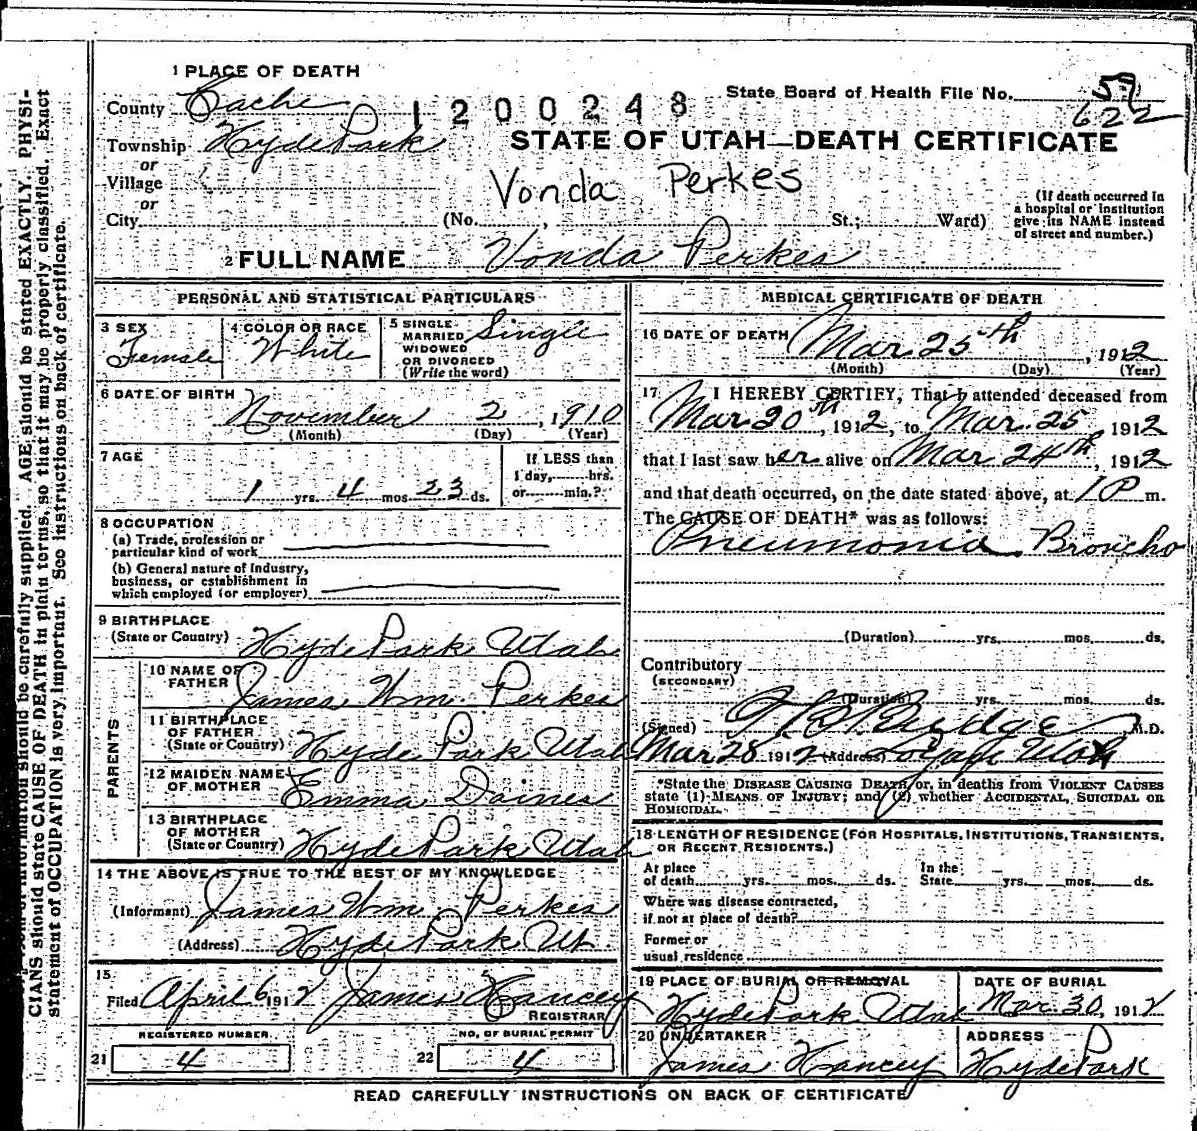 1 PLACE OF DEATH
County Cache
1200248
State Board of Health File No. 59
622
Township Hyde Park
STATE OF UTAH—DEATH CERTIFICATE
or
Village
Vonda Perkes
or
City (No. , St.; Ward)
(If death occurred in
a hospital or institution
give its NAME instead
of street and number.)
2 FULL NAME Vonda Perkes
PERSONAL AND STATISTICAL PARTICULARS
3 SEX
Female
4 COLOR OR RACE
White
5 SINGLE
MARRIED
WIDOWED
OR DIVORCED
(Write the word)
Single
6 DATE OF BIRTH
November 2, 1910
(Month) (Day) (Year)
7 AGE
1 yrs. 4 mos. 23 ds.
If LESS than
1 day, hrs.
or min.?
8 OCCUPATION
(a) Trade, profession or
particular kind of work
(b) General nature of Industry,
business, or establishment in
which employed (or employer)
9 BIRTHPLACE
(State or Country) Hyde Park Utah
PARENTS
10 NAME OF
FATHER
James Wm. Perkes
11 BIRTHPLACE
OF FATHER
(State or Country) Hyde Park Utah
12 MAIDEN NAME
OF MOTHER Emma Daines
13 BIRTHPLACE
OF MOTHER
(State or Country) Hyde Park Utah
14 THE ABOVE IS TRUE TO THE BEST OF MY KNOWLEDGE
(Informant) James Wm. Perkes
(Address) Hyde Park Ut
15
Filed April 6 1912 James Hancey
REGISTRAR
REGISTERED NUMBER
21 4
NO. OF BURIAL PERMIT
22 4
MEDICAL CERTIFICATE OF DEATH
16 DATE OF DEATH Mar 25th, 1912
(Month) (Day) (Year)
17 I HEREBY CERTIFY, That I attended deceased from
Mar 20th, 1912, to Mar. 25 1912
that I last saw her alive on Mar 24th, 1912
and that death occurred, on the date stated above, at 1 P m.
The CAUSE OF DEATH* was as follows:
Pneumonia Broncho
(Duration) yrs. mos. ds.
Contributory
(SECONDARY)
(Duration) yrs. mos. ds.
(Signed) Budge M.D.
Mar 28 1912 (Address) Logan Utah
*State the DISEASE CAUSING DEATH, or, in deaths from VIOLENT CAUSES
state (1) MEANS OF INJURY; and (2) whether ACCIDENTAL, SUICIDAL OR
HOMICIDAL.
18 LENGTH OF RESIDENCE (FOR HOSPITALS, INSTITUTIONS, TRANSIENTS,
OR RECENT RESIDENTS.)
At place
of death yrs. mos. ds.
In the
State yrs. mos. ds.
Where was disease contracted,
if not at place of death?
Former or
usual residence
19 PLACE OF BURIAL OR REMOVAL
Hyde Park Utah
DATE OF BURIAL
Mar. 30, 1912
20 UNDERTAKER
James Hancey
ADDRESS
Hyde Park
READ CAREFULLY INSTRUCTIONS ON BACK OF CERTIFICATE
information should be carefully supplied. AGE should be stated EXACTLY. PHYSI-
CIANS should state CAUSE OF DEATH in plain terms, so that it may be properly classified. Exact
statement of OCCUPATION is very important. See instructions on back of certificate.